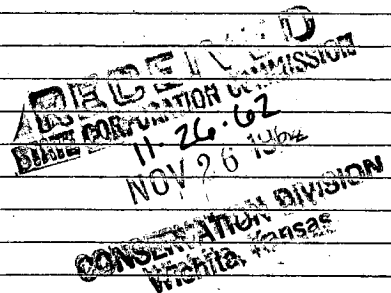 RECEIVED
STATE CORPORATION COMMISSION
11-26-62
NOV 26 1962
CONSERVATION DIVISION
Wichita, Kansas